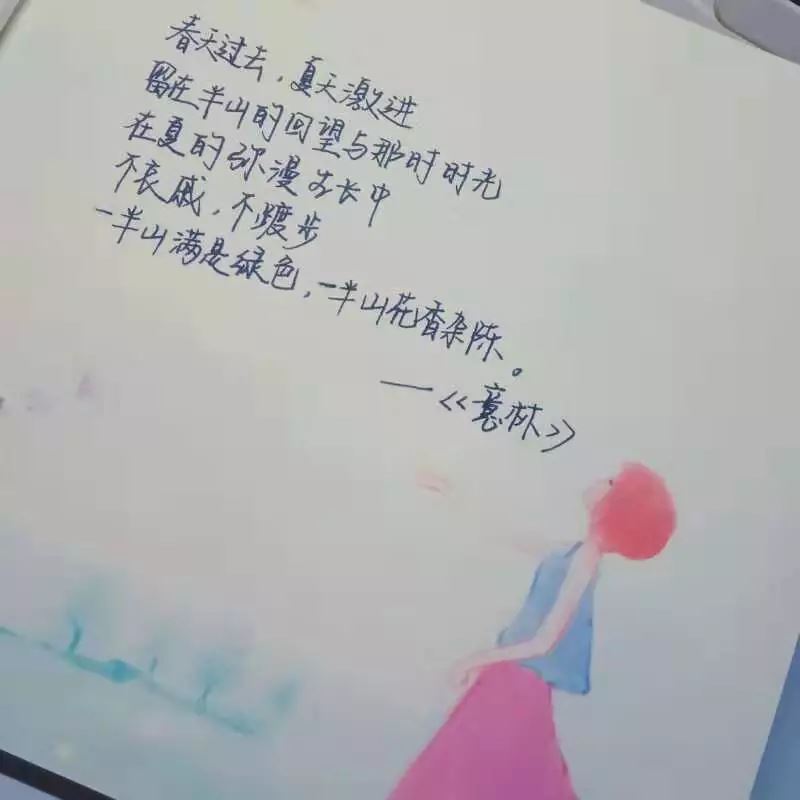 春天过去，夏天激进
留在半山的回望与那时时光
在夏的弥漫方长中
不哀戚，不踱步
一半山满是绿色，一半山花香杂陈。
——《意林》